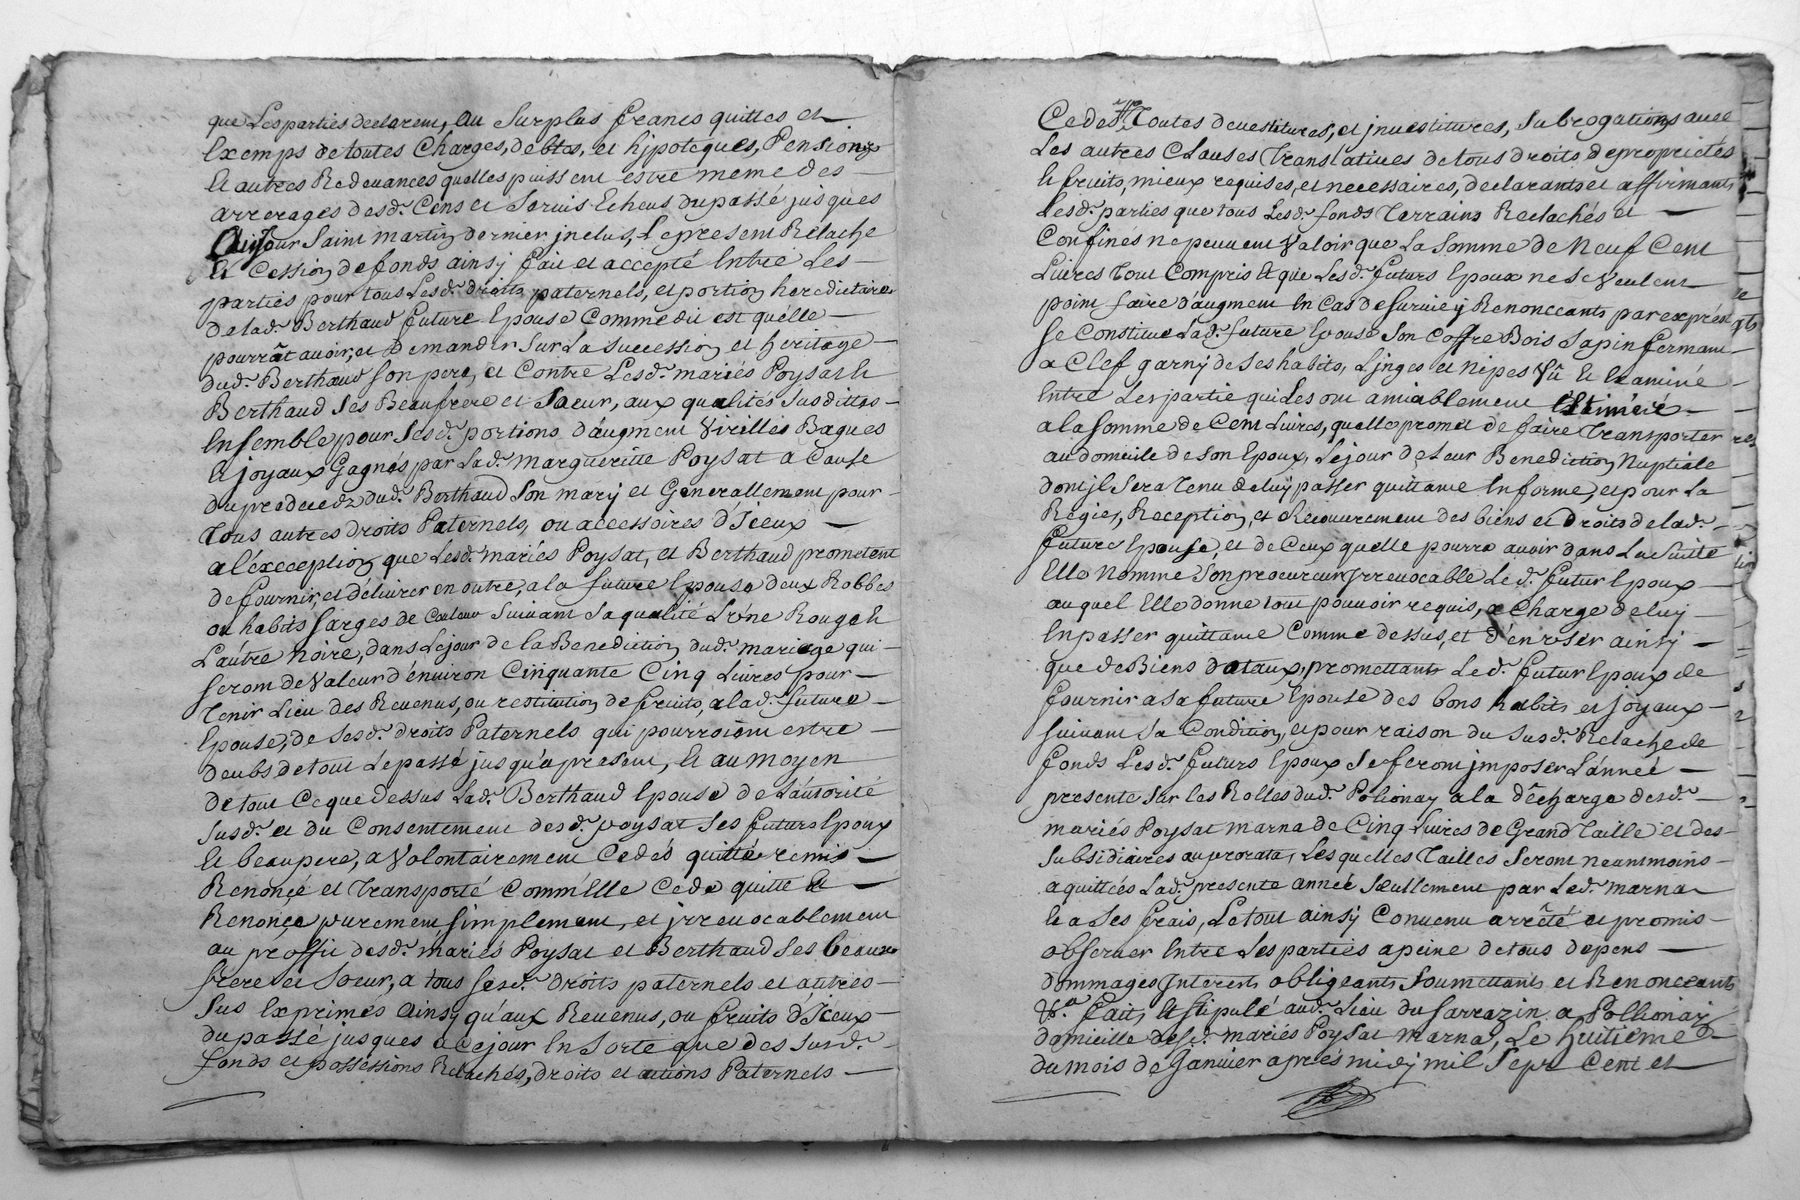 que Les parties declarent, au surplus francs quittes et
Exemps de toutes Charges, debtes, et hjpoteques, Pensions
Et autres Redevances quelles puissent estre meme des
arrerages desd. Cens et servis Echeus du passé jusques
Aujour Saint martin dernier jnclus, Le present Relache
Et Cession de fonds ainsj fait et accepté Entre Les
parties pour tous Lesd. droits paternels, et portion heredietaire
de lad. Berthaud future Epouse Comme dit est quelle
pourrât avoir, et Demander sur La succession et heritage
dud. Berthaud son pere, et Contre Lesd. mariés Poysat et
Berthaud ses Beaufrere et Soeur, aux qualités susdittes
Ensemble pour sesd. portions d'augment Virilles Bagues
Et joyaux Gagnés par Lad. Margueritte Poysat a Cause
du predecedz dud. Berthaud son mary et Generallement pour
Tous autres droits Paternels, ou accessoires d'Jceux
a l'éxception que Lesd. mariés Poysat, et Berthaud prometent
de fournir, et délivrer en outre, a la future Epouse deux Robbes
ou habits sarges de Couleur suivant sa qualité L'úne Rouge et
L'autre noire, dans Le jour de la Benediction dud. mariage qui
seront de Valeur d'environ Cinquante Cinq Livres pour
Tenir Lieu des Revenus, ou restitution de fruits, a lad. future
Epouse, de sesd. droits Paternels qui pourroient estre
deubs de tout Le passé jusqu'a present, Et au moyen
de tout Ce que dessus Lad. Berthaud Epouse de L'autorité
susd. et du Consentement desd. poysat ses futurs Epoux
Et beaupere, a Volontairement Cedés quitté remis
Renonçé et Transporté Comm'Elle Cede quitte Et
Renonçe purement simplement, et jrrevocablement
au proffit desd. mariés Poysat et Berthaud ses beaux
frere et Soeur, a tous sesd. droits paternels et autres
sus Exprimés Ainsy qu'aux Revenus, ou fruits d'Jceux
du passé jusques a Ce jour En Sorte que des susd.
fonds et possessions Relachés, droits et actions Paternels
Cedes Toutes devestitures, et jnvestitures, subrogations avec
Les autres Clauses Translatives de tous droits de proprietés
Et fruits, mieux requises, et necessaires, declarants et affirmants
Lesd. parties que tous Lesd. fonds Terrains Relachés et
Confinés ne peuvent Valoir que La Somme de Neuf Cent
Livres Tout Compris Et que Lesd. futurs Epoux ne se Veulent
point faire d'augment En Cas de survie y Renonceants par exprés
se Constitue Lad. future Epouse Son Coffre Bois Sapin fermant
a Clef garny de ses habits, Linges et Nipes Vû Et Examiné
Entre Les partie qui Les ont amiablement
a la somme de Cent Livres, quelle promet de faire Transporter
au domicile de son Epoux, Le jour de Leur Benediction Nuptiale
dont jl sera Tenu de luy passer quittance En forme, et pour La
Regies, Reception, et Recouvrement des biens et droits de lad.
future Epouse, et de Ceux quelle pourra avoir dans La suitte
Elle Nomme Son procureur jrrevocable Led. futur Epoux
auquel Elle donne tout pouvoir requis, a Charge de luy
En passer quittance Comme dessus, et d'en user ainsy
que des Biens dotaux, promettants Led. futur Epoux de
fournir a sa future Epouse des bons habits et joyaux
suivant sa Condition, et pour raison du susd. Relache de
fonds Lesd. futurs Epoux se feront jmposer L'année
presente sur les Rolles dud. Polionay a la décharge desd.
mariés Poysat marna de Cinq Livres de Grand Taille et des
subsidiaires au prorata, Lesquelles Tailles seront neantmoins
aquittées Lad. presente année seullement par Led. marna
Et a ses frais, Le tout ainsy Convenu arrêté et promis
observer Entre Les parties a peine de tous depens
dommages Jnterests obligeants Soumettants et Renonceants
&a. fait, Et stipulé aud. Lieu du sarrazin a Pollionay
domicille desd. mariés Poysat marna, Le huitieme
du mois de Janvier aprés midy mil sept Cent et